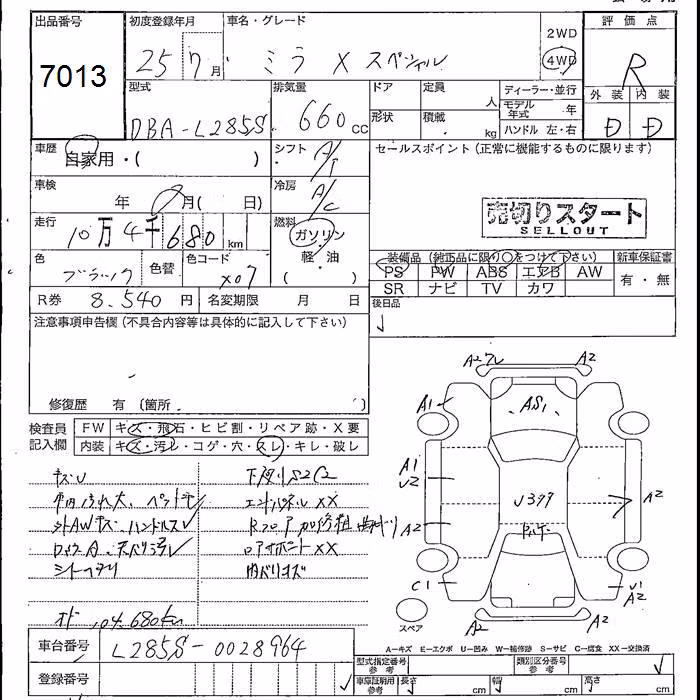 出品番号
7013
初度登録年月
25 7月
車名・グレード
ミラ X スペシャル
2WD
4WD
評価点
R
外装 内装
D D
型式
DBA-L285S
排気量
660cc
ドア
形状
定員
人
積載
kg
ディーラー・並行
モデル年式 年
ハンドル 左・右
車歴
自家用・( )
シフト A/T
セールスポイント(正常に機能するものに限ります)
車検
年 月( 日)
冷房 A/C
売切りスタート
SELLOUT
走行
10万4千680km
燃料
ガソリン
・
軽・油
色
ブラック
色替
色コード
X07
装備品(純正品に限り○をつけて下さい)
PS PW ABS エアB AW
SR ナビ TV カワ
新車保証書
有・無
R券 8,540円
名変期限 月 日
後日品
注意事項申告欄(不具合内容等は具体的に記入して下さい)
修復歴 有(箇所 )
検査員記入欄
FW キズ・飛石・ヒビ割・リペア跡・X要
内装 キズ・汚レ・コゲ・穴・スレ・キレ・破レ
下廻りS2C2
XX
XX
104,680km
A2 A2
A1 AS1
A1
U2
A2 A2
C1
A2 A2
スペア
A2
A-キズ E-エクボ U-凹み W-補修跡 S-サビ C-腐食 XX-交換済
車台番号 L285S-0028964
登録番号
型式指定番号 参考
類別区分番号 参考
車庫証明用 参考
長さ cm 幅 cm 高さ cm